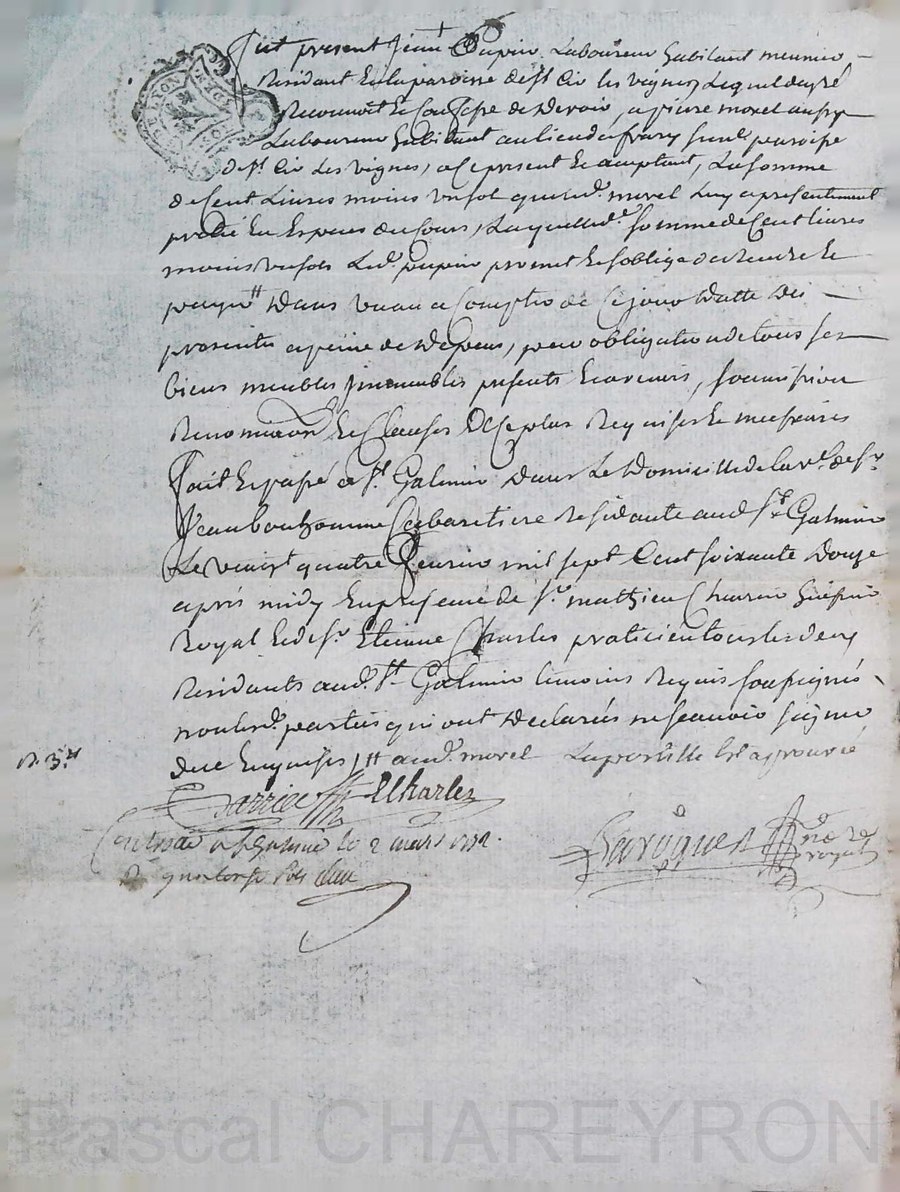 fut present jean Pupin Laboureur habitant meunier
Residant En la paroisse de St Cir les vignes Lequel de gré
Reconnoit Et Confesse de Devoir, a pierre morel aussy
Laboureur habitant au lieu de susd. paroisse
de St. Cir Les vignes, ace present Et acceptant, La somme
de Cent Livres moins un sol que led. morel Luy a presentement
prêté En Especes du Cours, Laquelle de. somme de Cent livres
moins un sols Led. pupin promet Et soblige de Rendre Et
payer tt Dans un an a Compter de Ce jour Datte Des
presentes apeine de Depens, pour obligation de tous ses
biens meubles jmmeubles presents Et avenir, soumission
Renonciaon Et Clauses Requises Et necessaires
fait Et passé a St. Galmier Dans Le Domicille de la ve. de sr.
Jean bonhomme Cabaretiere Residante aud St. Galmier
Le vingt quatre feuvrier mil sept Cent soixante Douze
après midy En presence de sr. mathieu Charin huissier
Royal Et de sr. Etienne Charles praticien tous les deux
Residants aud. St. Galmier temoins Requis soussignés
non led. parties qui ont Declarés ne scavoir signer
de ce Enquises, tt aud. morel Lapostille Est approuvée
R. 3.tt
ECharles
Controllé a St Galmier le 2 mars 1772.
R quatorze sols
Laroque nore
royal
DE LYON
Pascal CHAREYRON